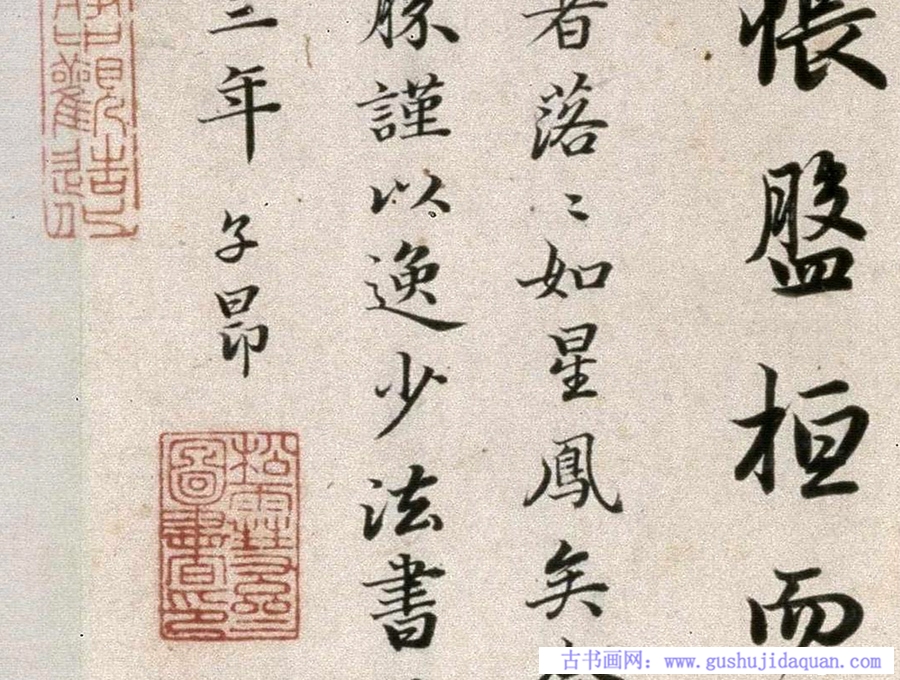 悵盤桓而
者落〻如星鳳矣
謹以逸少法書
二年子昂
松雪齋圖書印
古书画网：www.gushujidaquan.com